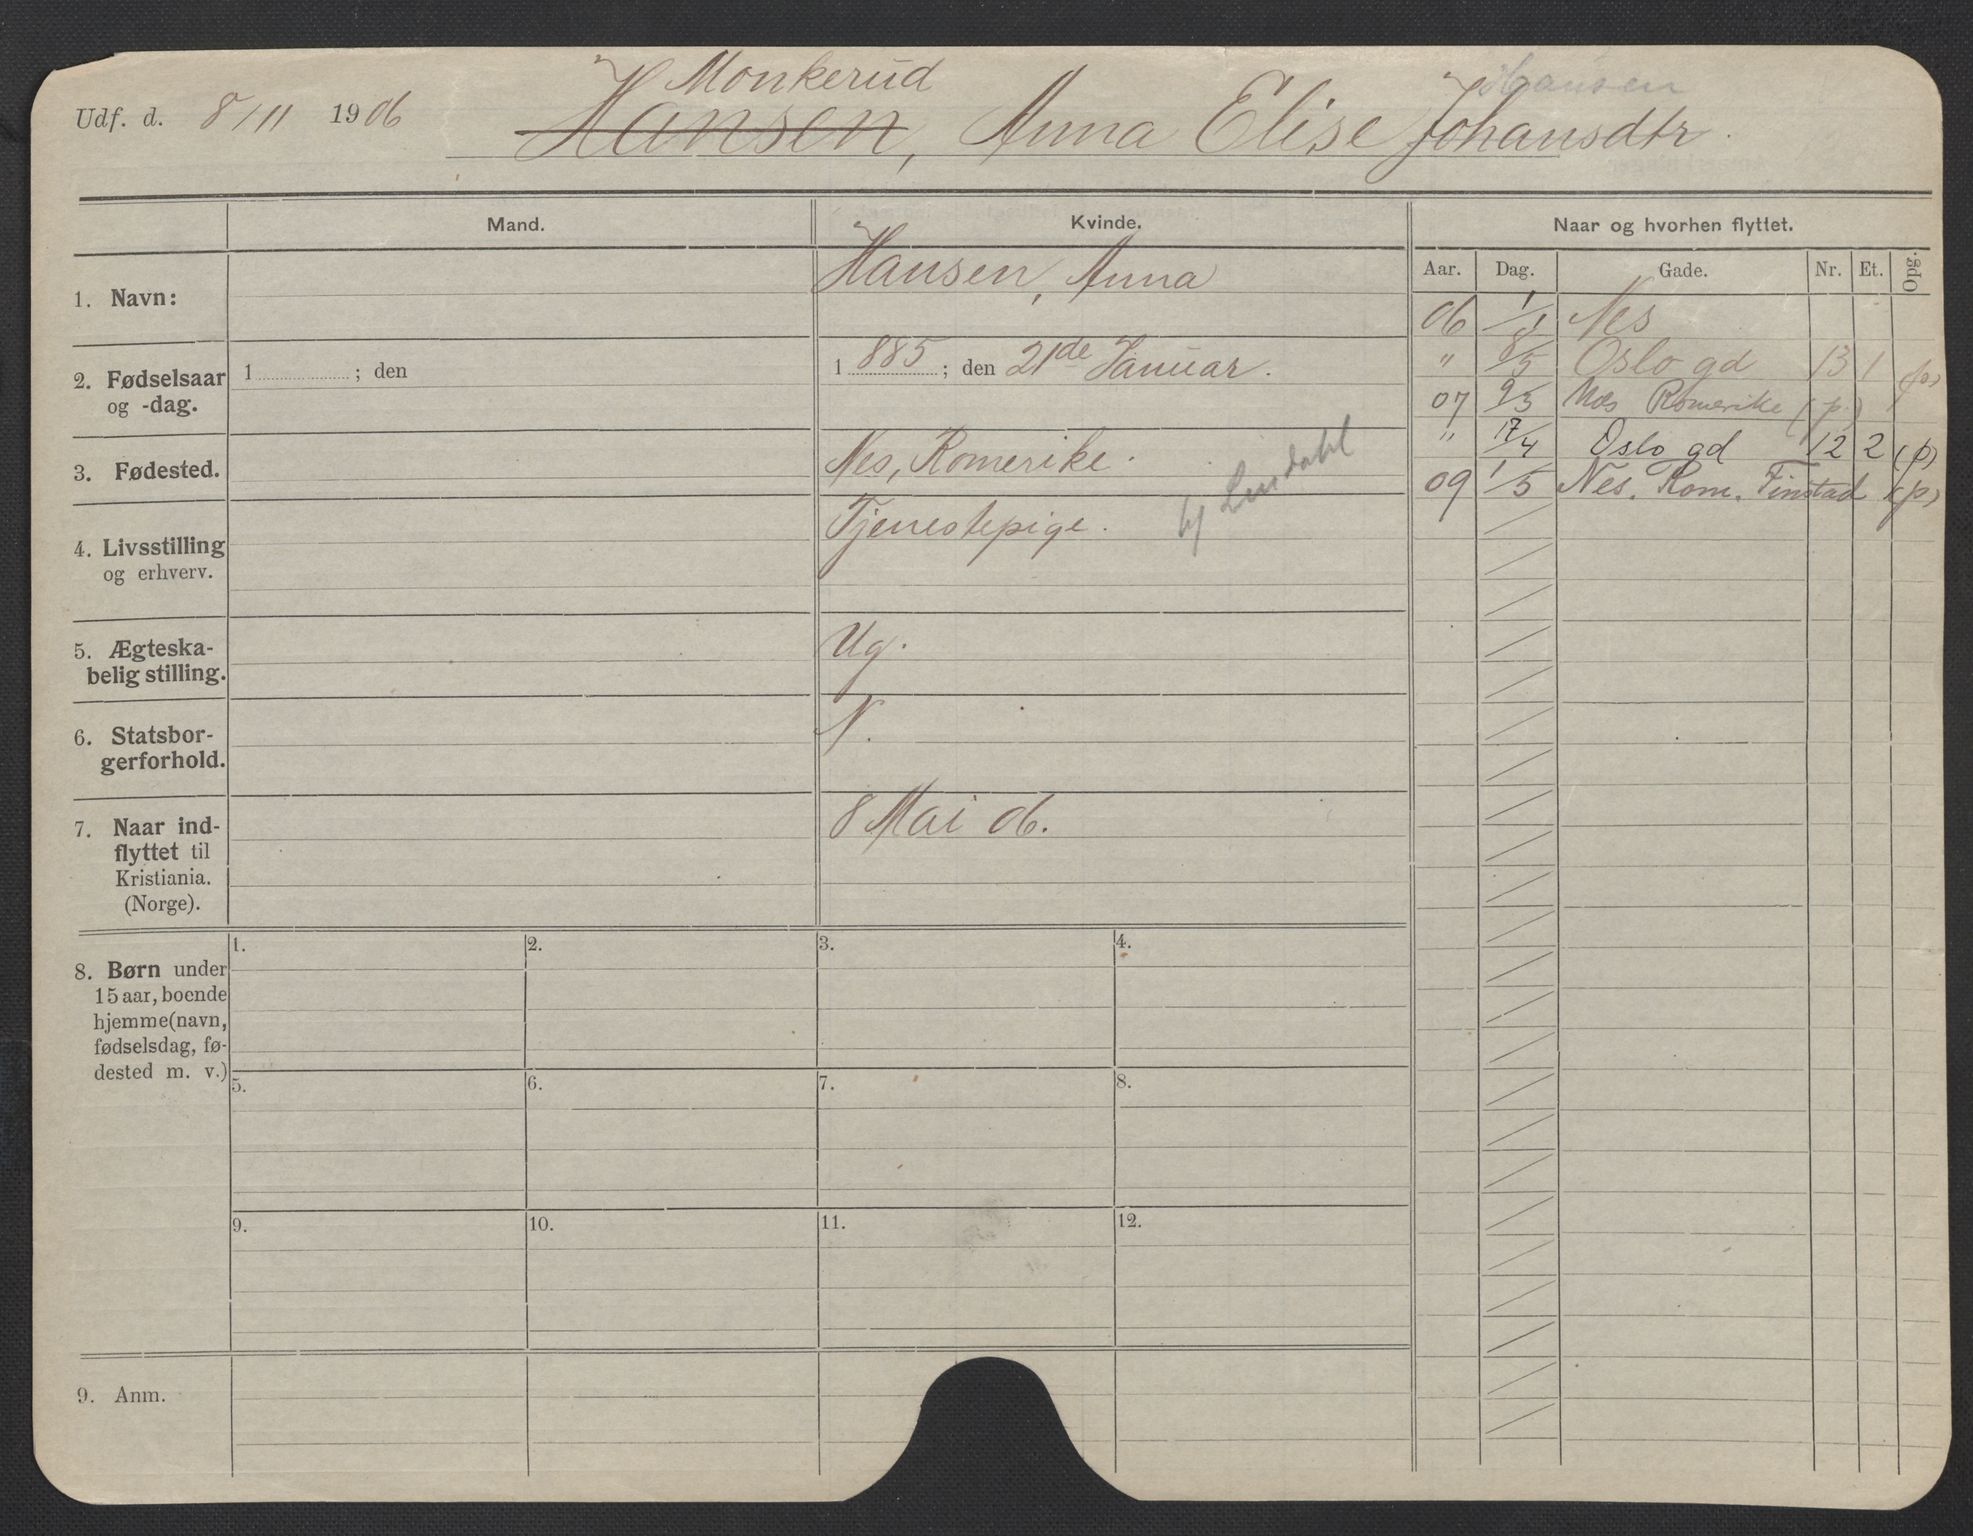 Monkerud
Udf. d. 8/11 1906 Hansen, Anna Elise Johansdtr.
Mand.
Kvinde.
Naar og hvorhen flyttet.
Aar. Dag. Gade. Nr. Et. Opg.
1. Navn:
Hansen, Anna
2. Fødselsaar
og -dag.
1 ; den
1885; den 21de Januar.
3. Fødested.
Nes, Romerike.
4. Livsstilling
og erhverv.
Tjenestepige. hj Lindahl
5. Ægteska-
belig stilling.
Ug.
6. Statsbor-
gerforhold.
N.
7. Naar ind-
flyttet til
Kristiania.
(Norge).
8 Mai 06.
06 1/1 Nes
" 8/5 Oslo gd 13 1 (p)
07 9/3 Nes Romerike (p)
" 17/4 Oslo gd 12 2 (p)
09 1/5 Nes. Rom. Finstad (p)
8. Børn under
15 aar, boende
hjemme (navn,
fødselsdag, fø-
dested m. v.)
1. 2. 3. 4.
5. 6. 7. 8.
9. 10. 11. 12.
9. Anm.